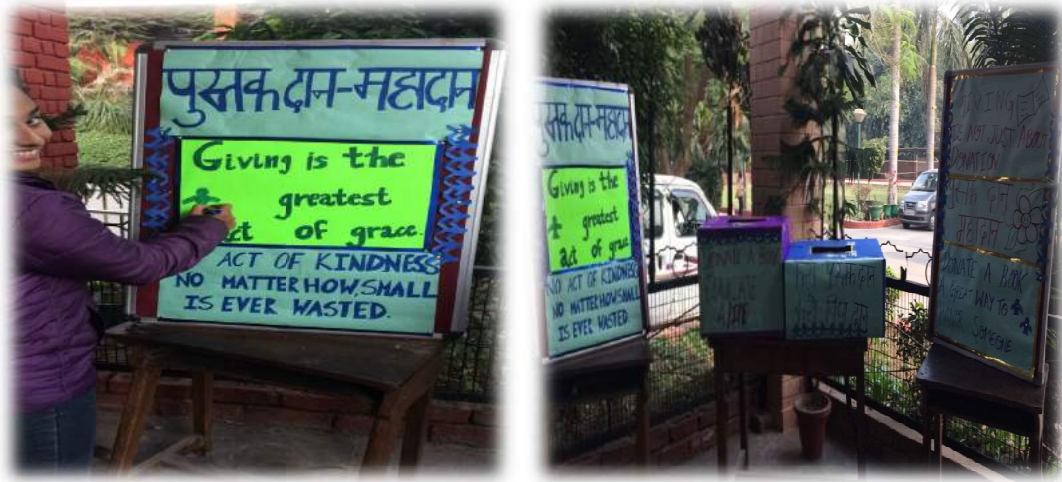 पुस्तक दान-महादान
Giving is the
greatest
act of grace.
ACT OF KINDNESS
NO MATTER HOW SMALL
IS EVER WASTED.
पुस्तक दान-महादान
Giving is the
greatest
act of grace
NO ACT OF KINDNESS
NO MATTER HOW SMALL
IS EVER WASTED.
DONATE A BOOK
GIVING
IS NOT JUST ABOUT
DONATION
DONATE A BOOK
A GREAT WAY TO
SOMEONE